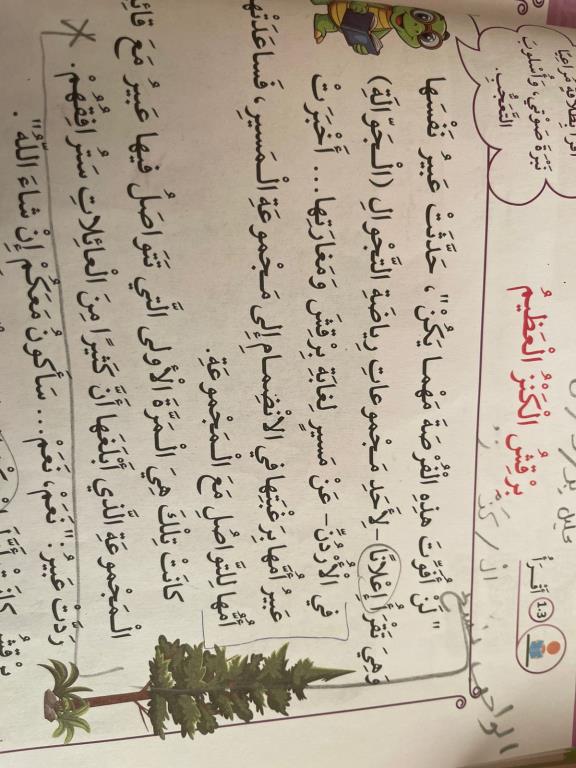 (1.3) أَقْرَأُ
بِرْقِشُ الْكَنْزُ الْعَظِيمُ
نَبْرَةَ صَوْتِي، وَأُسْلُوبَ
التَّعَجُّبِ.
"لَنْ أُفَوِّتَ هذِهِ الْفُرْصَةَ مَهْما يَكُنْ"، حَدَّثَتْ عَبيرُ نَفْسَها
وَهِيَ تَقْرَأُ إِعْلانًا - لِأَحَدِ مَجْموعاتِ رِياضَةِ التَّجْوالِ (الْجَوّالَةِ)
في الْأُرْدُنِّ - عَنْ مَسيرٍ لِغابَةِ بِرْقِشَ وَمَغارَتِها... أَخْبَرَتْ
عَبيرُ أُمَّها بِرَغْبَتِها في الِانْضِمامِ إِلى مَجْموعَةِ الْمَسيرِ، فَساعَدَتْها
أُمُّها لِلتَّواصُلِ مَعَ الْمَجْموعَةِ.
كانَتْ تِلْكَ هِيَ الْمَرَّةَ الْأولى الَّتي تَتَواصَلُ فيها عَبيرُ مَعَ
الْمَجْموعَةِ الَّذي أَبْلَغَها أَنَّ كَثيرًا مِنَ الْعائِلاتِ سَتُرافِقُهُمْ.
رَدَّتْ عَبيرُ: "نَعَمْ، نَعَمْ... سَأَكونُ مَعَكُمْ إِنْ شاءَ اللّٰهُ".